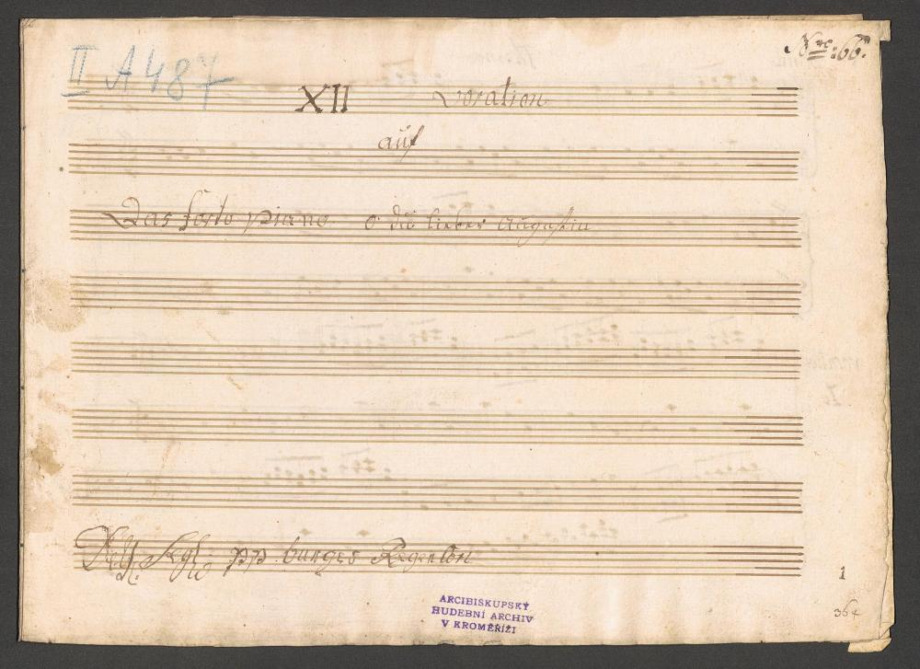 II A 487
Nro: 66.
XII Variation
auf
Das forte piano o du lieber Augustin
pp
ARCIBISKUPSKÝ
HUDEBNÍ ARCHIV
V KROMĚŘÍŽI
1
364